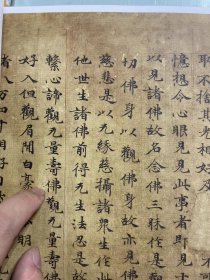 取不捨其光相好
憶想令心眼見見此事者即見十
以見諸佛故名念佛三昧作是觀
切佛身以觀佛身故亦見佛
慈悲是以无緣慈攝諸衆生作此
他世生諸佛前得无生法忍是故
繫心諦觀无量壽佛觀无量壽佛
好入但觀眉間白毫 明
者八万四千相好自